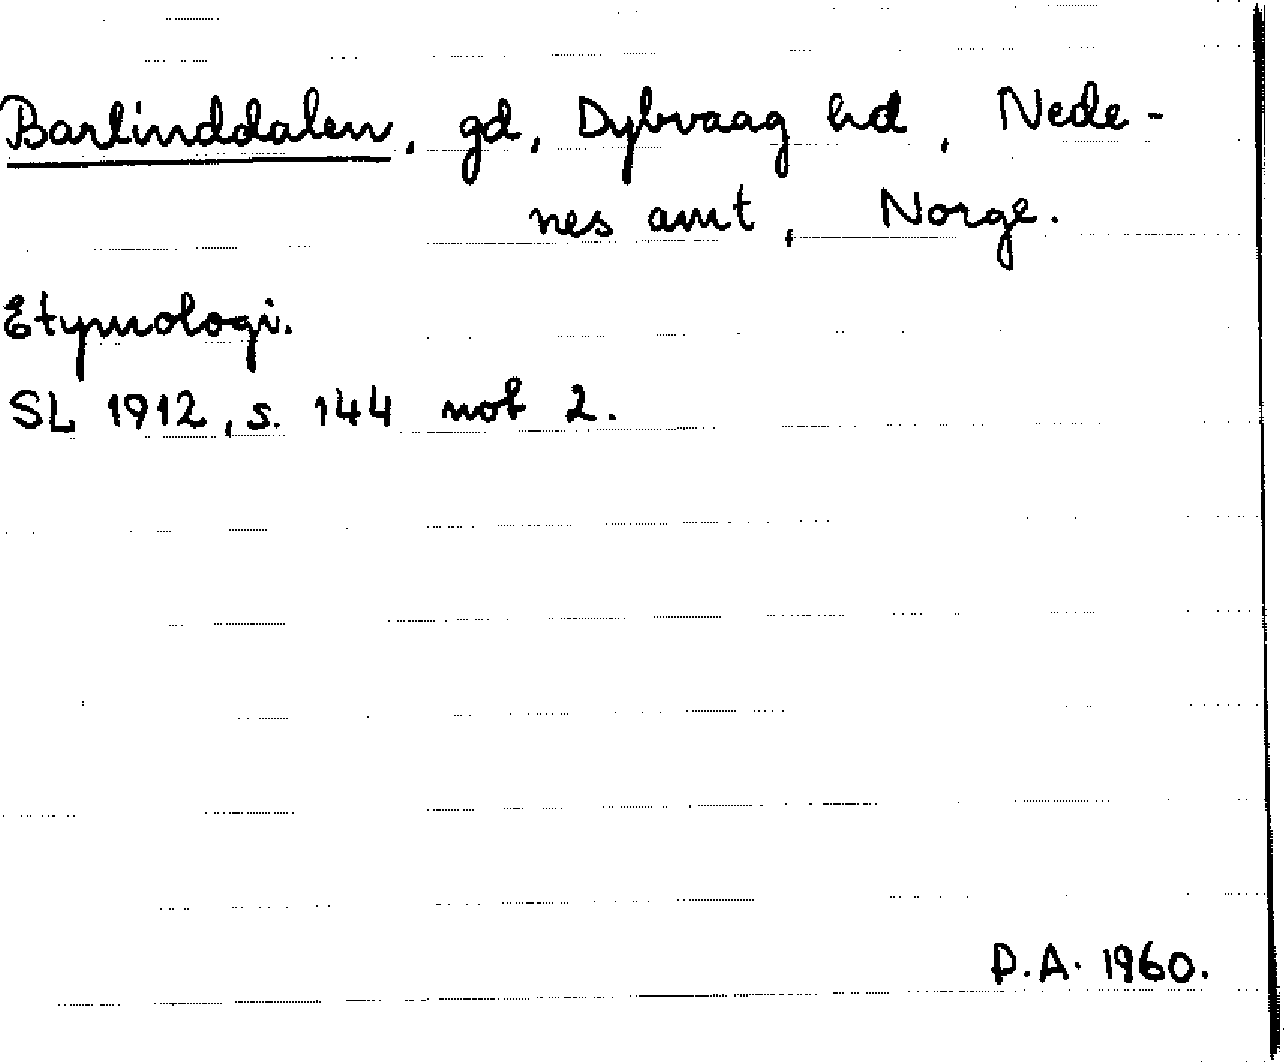 Barlinddalen, gd, Dybvaag hd, Nede-
nes amt, Norge.
Etymologi.
SL 1912, s. 144 not 2.
D.A. 1960.